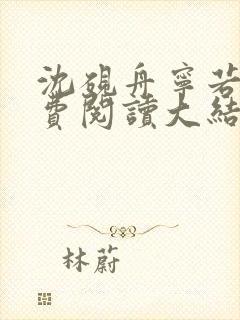 沈硯舟寧若
費閱讀大結
林蔚